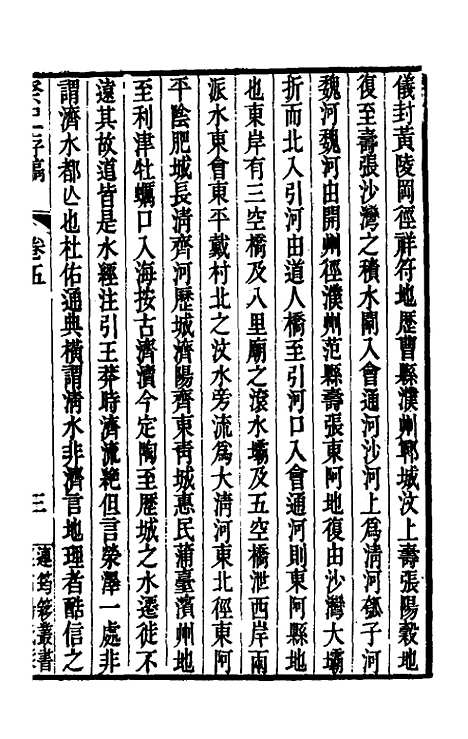 儀封黃陵岡徑祥符地歷曹縣濮州鄆城汶上壽張陽穀地
復至壽張沙灣之積水閘入會通河沙河上爲淸河瓠子河
魏河魏河由開州徑濮州范縣壽張東阿地復由沙灣大壩
折而北入引河由道人橋至引河口入會通河則東阿縣地
也東岸有三空橋及八里廟之滾水壩及五空橋泄西岸兩
派水東會東平戴村北之汶水旁流爲大淸河東北徑東阿
平陰肥城長淸齊河歷城濟陽齊東靑城惠民蒲臺濱州地
至利津牡蠣口入海按古濟瀆今定陶至歷城之水遷徙不
遠其故道皆是水經注引王莽時濟流絶但言滎澤一處非
謂濟水都亾也杜佑通典橫謂淸水非濟言地理者酷信之
癸巳存稿 卷五 三 連筠簃叢書